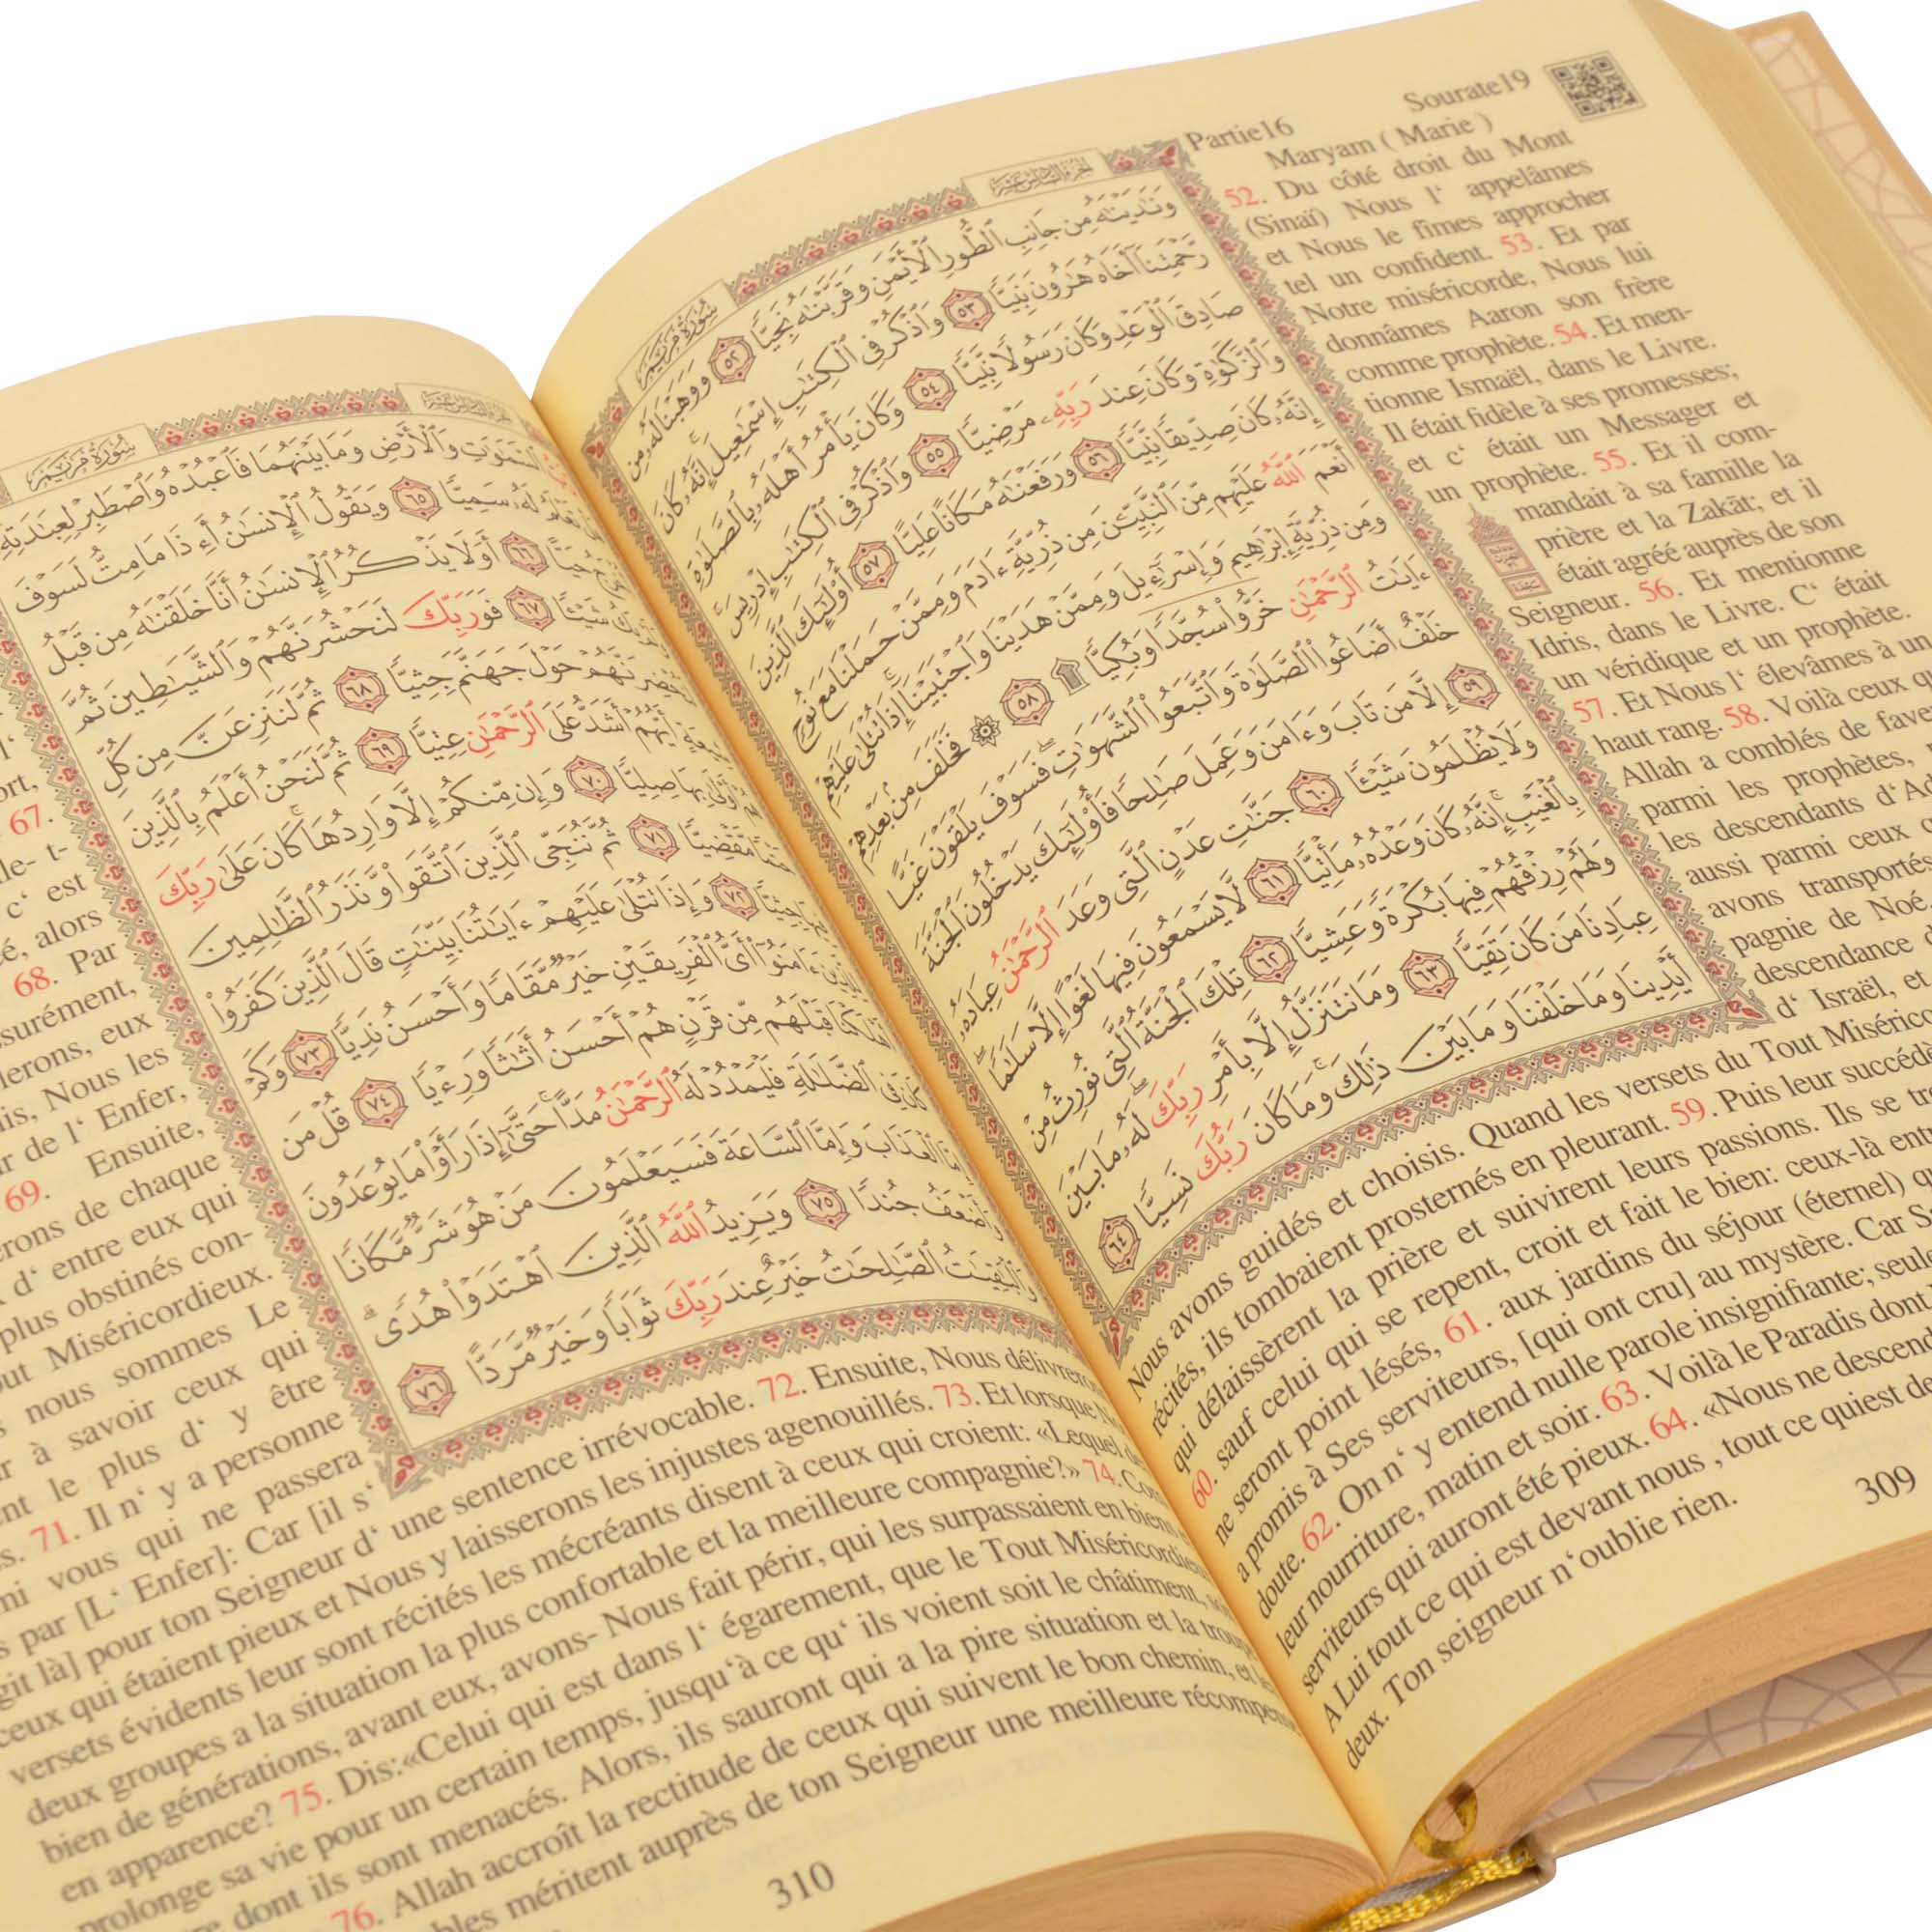 Partie16
Sourate19
Maryam ( Marie )
سُورَةُ مَرْيَمَ
وَنَٰدَيْنَٰهُ مِن جَانِبِ ٱلطُّورِ ٱلْأَيْمَنِ وَقَرَّبْنَٰهُ نَجِيًّا ٥٢ وَوَهَبْنَا لَهُۥ مِن
رَّحْمَتِنَآ أَخَاهُ هَٰرُونَ نَبِيًّا ٥٣ وَٱذْكُرْ فِى ٱلْكِتَٰبِ إِسْمَٰعِيلَ إِنَّهُۥ كَانَ
صَادِقَ ٱلْوَعْدِ وَكَانَ رَسُولًا نَّبِيًّا ٥٤ وَكَانَ يَأْمُرُ أَهْلَهُۥ بِٱلصَّلَوٰةِ
وَٱلزَّكَوٰةِ وَكَانَ عِندَ رَبِّهِۦ مَرْضِيًّا ٥٥ وَٱذْكُرْ فِى ٱلْكِتَٰبِ إِدْرِيسَ
إِنَّهُۥ كَانَ صِدِّيقًا نَّبِيًّا ٥٦ وَرَفَعْنَٰهُ مَكَانًا عَلِيًّا ٥٧ أُو۟لَٰٓئِكَ ٱلَّذِينَ
أَنْعَمَ ٱللَّهُ عَلَيْهِم مِّنَ ٱلنَّبِيِّۦنَ مِن ذُرِّيَّةِ ءَادَمَ وَمِمَّنْ حَمَلْنَا مَعَ نُوحٍ
وَمِن ذُرِّيَّةِ إِبْرَٰهِيمَ وَإِسْرَٰٓءِيلَ وَمِمَّنْ هَدَيْنَا وَٱجْتَبَيْنَآ إِذَا تُتْلَىٰ عَلَيْهِمْ
ءَايَٰتُ ٱلرَّحْمَٰنِ خَرُّوا۟ سُجَّدًا وَبُكِيًّا ۩ ٥٨ ۞ فَخَلَفَ مِنۢ بَعْدِهِمْ
خَلْفٌ أَضَاعُوا۟ ٱلصَّلَوٰةَ وَٱتَّبَعُوا۟ ٱلشَّهَوَٰتِ فَسَوْفَ يَلْقَوْنَ غَيًّا
٥٩ إِلَّا مَن تَابَ وَءَامَنَ وَعَمِلَ صَٰلِحًا فَأُو۟لَٰٓئِكَ يَدْخُلُونَ ٱلْجَنَّةَ
وَلَا يُظْلَمُونَ شَيْـًٔا ٦٠ جَنَّٰتِ عَدْنٍ ٱلَّتِى وَعَدَ ٱلرَّحْمَٰنُ عِبَادَهُۥ
بِٱلْغَيْبِ إِنَّهُۥ كَانَ وَعْدُهُۥ مَأْتِيًّا ٦١ لَّا يَسْمَعُونَ فِيهَا لَغْوًا إِلَّا سَلَٰمًا
وَلَهُمْ رِزْقُهُمْ فِيهَا بُكْرَةً وَعَشِيًّا ٦٢ تِلْكَ ٱلْجَنَّةُ ٱلَّتِى نُورِثُ مِنْ
عِبَادِنَا مَن كَانَ تَقِيًّا ٦٣ وَمَا نَتَنَزَّلُ إِلَّا بِأَمْرِ رَبِّكَ لَهُۥ مَا بَيْنَ
أَيْدِينَا وَمَا خَلْفَنَا وَمَا بَيْنَ ذَٰلِكَ وَمَا كَانَ رَبُّكَ نَسِيًّا ٦٤
52. Du côté droit du Mont
(Sinaï) Nous l‘ appelâmes
et Nous le fîmes approcher
tel un confident. 53. Et par
Notre miséricorde, Nous lui
donnâmes Aaron son frère
comme prophète. 54. Et men-
tionne Ismaël, dans le Livre.
Il était fidèle à ses promesses;
et c‘ était un Messager et
un prophète. 55. Et il com-
mandait à sa famille la
prière et la Zakāt; et il
était agréé auprès de son
Seigneur. 56. Et mentionne
Idris, dans le Livre. C‘ était
un véridique et un prophète.
57. Et Nous l‘ élevâmes à un
haut rang. 58. Voilà ceux
Allah a comblés de
parmi les prophètes,
les descendants
aussi parmi ceux
avons transportés
pagnie de Noé,
descendance
d‘ Israël, et
Nous avons guidés et choisis. Quand les versets du Tout
récités, ils tombaient prosternés en pleurant. 59. Puis leur
qui délaissèrent la prière et suivirent leurs passions. Ils se
60. sauf celui qui se repent, croit et fait le bien: ceux-là
ne seront point lésés, 61. aux jardins du séjour (éternel)
a promis à Ses serviteurs, [qui ont cru] au mystère. Car
doute. 62. On n‘ y entend nulle parole insignifiante;
leur nourriture, matin et soir. 63. Voilà le Paradis dont
serviteurs qui auront été pieux. 64. «Nous ne
A Lui tout ce qui est devant nous , tout ce quiest
deux. Ton seigneur n‘oublie rien.
309
سُورَةُ مَرْيَمَ
ٱلسَّمَٰوَٰتِ وَٱلْأَرْضِ وَمَا بَيْنَهُمَا فَٱعْبُدْهُ وَٱصْطَبِرْ لِعِبَٰدَتِهِۦ
لَهُۥ سَمِيًّا ٦٥ وَيَقُولُ ٱلْإِنسَٰنُ أَءِذَا مَا مِتُّ لَسَوْفَ
حَيًّا ٦٦ أَوَلَا يَذْكُرُ ٱلْإِنسَٰنُ أَنَّا خَلَقْنَٰهُ مِن قَبْلُ
شَيْـًٔا ٦٧ فَوَرَبِّكَ لَنَحْشُرَنَّهُمْ وَٱلشَّيَٰطِينَ ثُمَّ
حَوْلَ جَهَنَّمَ جِثِيًّا ٦٨ ثُمَّ لَنَنزِعَنَّ مِن كُلِّ
أَيُّهُمْ أَشَدُّ عَلَى ٱلرَّحْمَٰنِ عِتِيًّا ٦٩ ثُمَّ لَنَحْنُ أَعْلَمُ بِٱلَّذِينَ
أَوْلَىٰ بِهَا صِلِيًّا ٧٠ وَإِن مِّنكُمْ إِلَّا وَارِدُهَا كَانَ عَلَىٰ رَبِّكَ
مَّقْضِيًّا ٧١ ثُمَّ نُنَجِّى ٱلَّذِينَ ٱتَّقَوا۟ وَّنَذَرُ ٱلظَّٰلِمِينَ
جِثِيًّا ٧٢ وَإِذَا تُتْلَىٰ عَلَيْهِمْ ءَايَٰتُنَا بَيِّنَٰتٍ قَالَ ٱلَّذِينَ كَفَرُوا۟
ءَامَنُوٓا۟ أَىُّ ٱلْفَرِيقَيْنِ خَيْرٌ مَّقَامًا وَأَحْسَنُ نَدِيًّا ٧٣ وَكَمْ
قَبْلَهُم مِّن قَرْنٍ هُمْ أَحْسَنُ أَثَٰثًا وَرِءْيًا ٧٤ قُلْ مَن
كَانَ فِى ٱلضَّلَٰلَةِ فَلْيَمْدُدْ لَهُ ٱلرَّحْمَٰنُ مَدًّا حَتَّىٰٓ إِذَا رَأَوْا۟ مَا يُوعَدُونَ
ٱلْعَذَابَ وَإِمَّا ٱلسَّاعَةَ فَسَيَعْلَمُونَ مَنْ هُوَ شَرٌّ مَّكَانًا
وَأَضْعَفُ جُندًا ٧٥ وَيَزِيدُ ٱللَّهُ ٱلَّذِينَ ٱهْتَدَوْا۟ هُدًى
وَٱلْبَٰقِيَٰتُ ٱلصَّٰلِحَٰتُ خَيْرٌ عِندَ رَبِّكَ ثَوَابًا وَخَيْرٌ مَّرَدًّا ٧٦
67.
c‘ est
alors
68. Par
eux
Nous les
de l‘ Enfer,
69. Ensuite,
de chaque
d‘ entre eux qui
plus obstinés con-
Miséricordieux.
nous sommes Le
à savoir ceux qui
le plus d‘ y être
71. Il n‘ y a personne
vous qui ne passera
par [L‘ Enfer]: Car [il s‘
là] pour ton Seigneur d‘ une sentence irrévocable. 72. Ensuite, Nous
ceux qui étaient pieux et Nous y laisserons les injustes agenouillés. 73. Et lorsque
versets évidents leur sont récités les mécréants disent à ceux qui croient: «Lequel
deux groupes a la situation la plus confortable et la meilleure compagnie?» 74.
bien de générations, avant eux, avons- Nous fait périr, qui les surpassaient en biens
en apparence? 75. Dis:«Celui qui est dans l‘ égarement, que le Tout
prolonge sa vie pour un certain temps, jusqu‘à ce qu‘ ils voient soit le châtiment,
dont ils sont menacés. Alors, ils sauront qui a la pire situation et la
76. Allah accroît la rectitude de ceux qui suivent le bon chemin, et
méritent auprès de ton Seigneur une meilleure
310